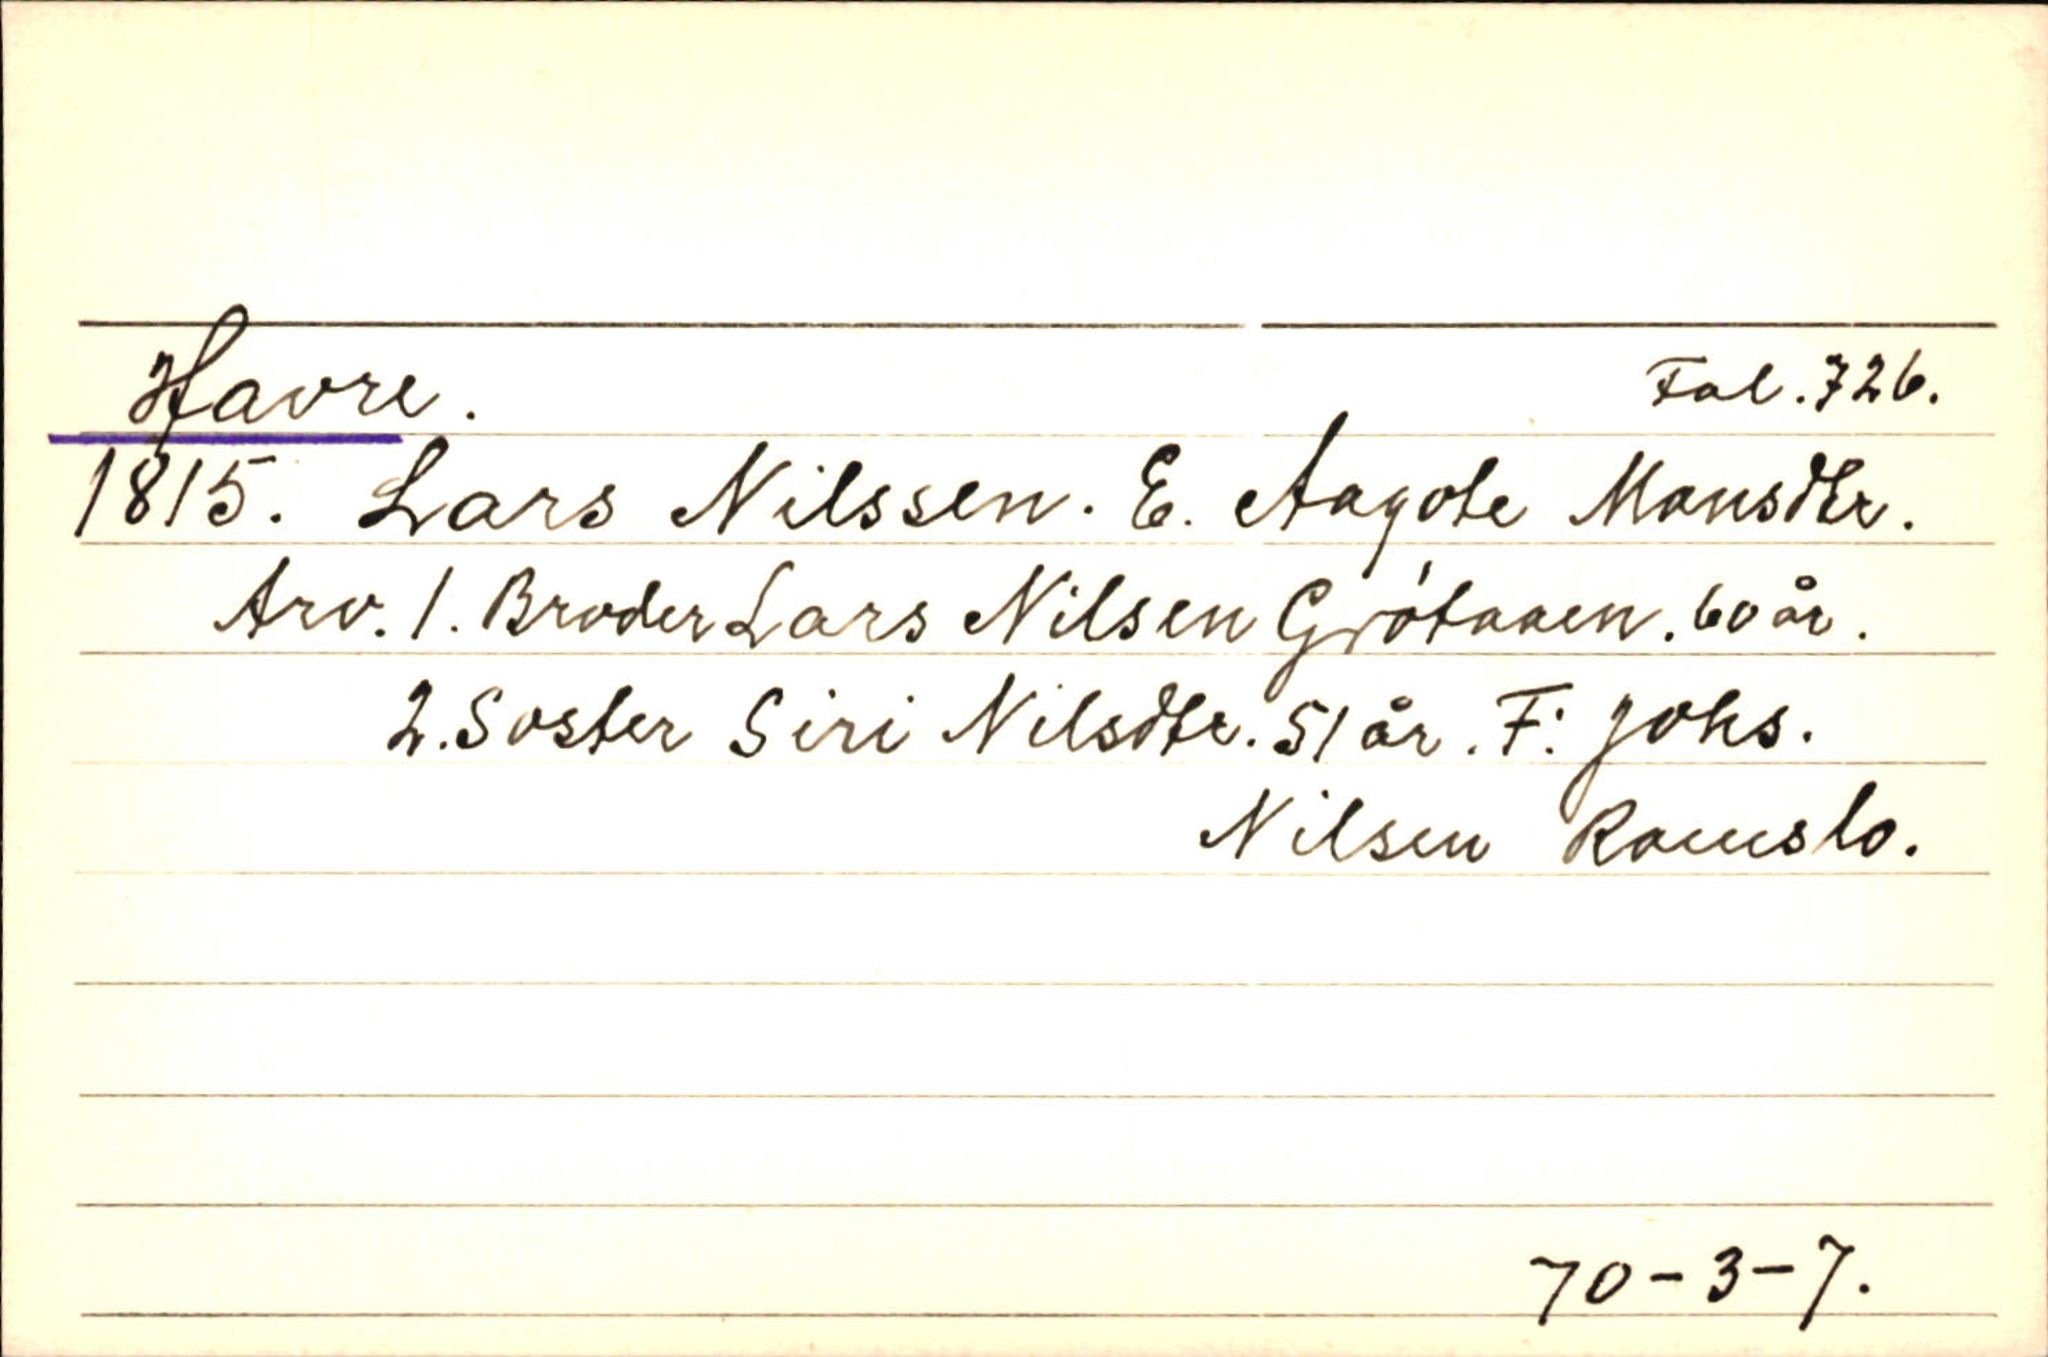 Havre. Fol. 726.
1815. Lars Nilssen. E. Aagote Monsdtr.
Arv. 1. Broder Lars Nilsen Gjötaaen. 60 år.
2. Soster Siri Nilsdtr. 51 år. F: Johs.
Nilsen Romslo.
70-3-7.